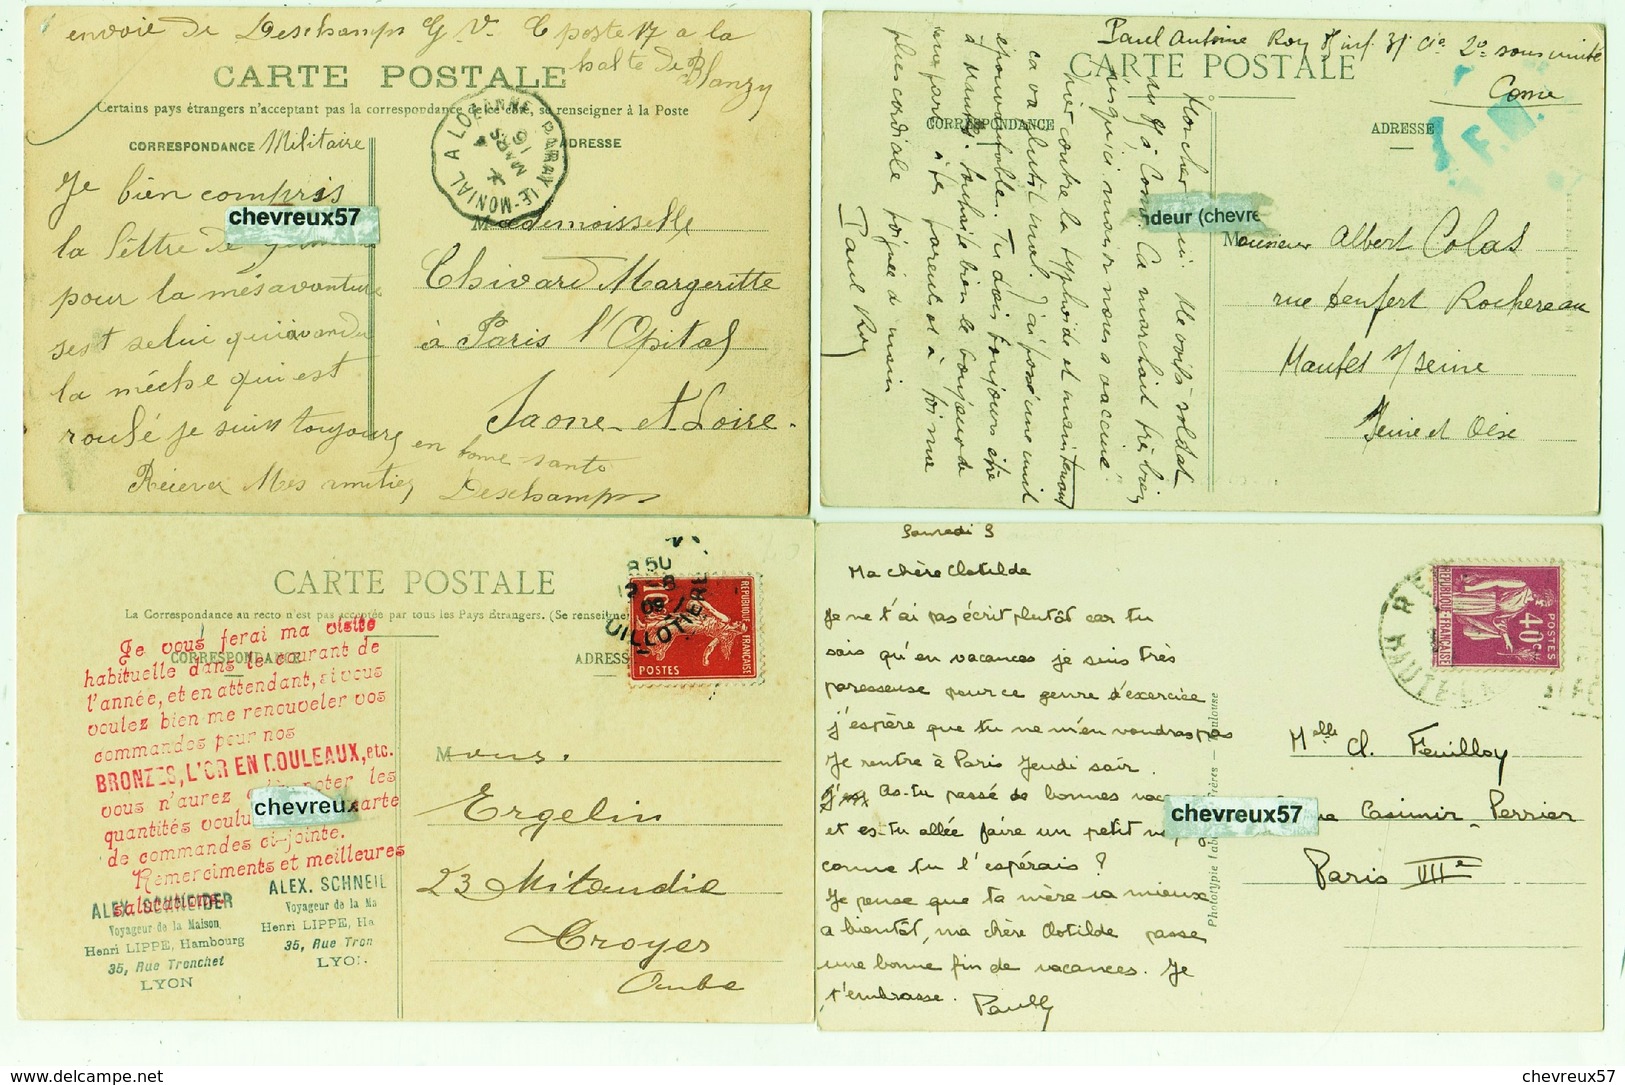 envoie de Deschamps G. V. C poste 17 a la
halte de Blanzy
CARTE POSTALE
Certains pays étrangers n'acceptant pas la correspondance de ce côté, se renseigner à la Poste
CORRESPONDANCE Militaire
ADRESSE
PARAY-LE-MONIAL A LOZANNE
MARS
16
Je bien compris
la lèttre de
pour la mésavanture
sest selui qui avandu
la méche qui est
roulé je suis toujours en bone santé
Recever Mes amitiez
Deschamps
chevreux57
Mademoisselle
Chivard Margeritte
à Paris l'Opital
Saone-et-Loire-
Paul Antoine Roy inf. 31 Cie 2e sous unité
Come
CARTE POSTALE
CORRESPONDANCE
ADRESSE
F.M.
Mon cher ami. Me voilà soldat
Ca marchait très bien
jusqu'ici mais on nous a vacciné
hier contre la typhoide et maintenant
ca va plutôt mal. J'ai passé une nuit
épouvantable. Tu dois toujours être
à Souhaite bien le bonjour de
ma part à tes parents et à toi une
plus cordiale poignée de main
Paul Roy
ndeur (chevre
Monsieur Albert Colas
rue Denfert Rochereau
Mantes s/seine
Seine et Oise
CARTE POSTALE
La Correspondance au recto n'est pas acceptée par tous les Pays Étrangers. (Se renseigne
CORRESPONDANCE
ADRESS
Je vous ferai ma visite
habituelle dans le courant de
l'année, et en attendant, si vous
voulez bien me renouveler vos
commandes pour nos
BRONZES, L'OR EN ROULEAUX, etc.
vous n'aurez qu'à noter les
quantités voulu arte
de commandes ci-jointe.
Remerciments et meilleures
salutations
chevreux
ALEX. SCHNEIDER
Voyageur de la Maison
Henri LIPPE, Hambourg
35, Rue Tronchet
LYON
ALEX. SCHNEI
Voyageur de la Ma
Henri LIPPE, Ha
35, Rue Tron
LYON
RÉPUBLIQUE FRANÇAISE
10c
POSTES
Mons.
Ergelin
23 Mitandie
Troyes
Aube
Samedi 3
Ma chère Clotilde
Je ne t'ai pas écrit plutôt car tu
sais qu'en vacances je suis très
paresseuse pour ce genre d'exercice
j'espère que tu ne m'en voudras pas
Je rentre à Paris Jeudi soir.
As-tu passé de bonnes vac
et es-tu allée faire un petit
comme tu l'espérais ?
Je pense que ta mère va mieux
a bientôt, ma chère Clotilde passe
une bonne fin de vacances. Je
t'embrasse.
Paully
Phototypie Labouche Frères — Toulouse
RÉPUBLIQUE FRANÇAISE
POSTES
40c
HAUTE-
chevreux57
Melle Cl. Feuilloy
rue Casimir-Perrier
Paris VIIe
delcampe.net
chevreux57